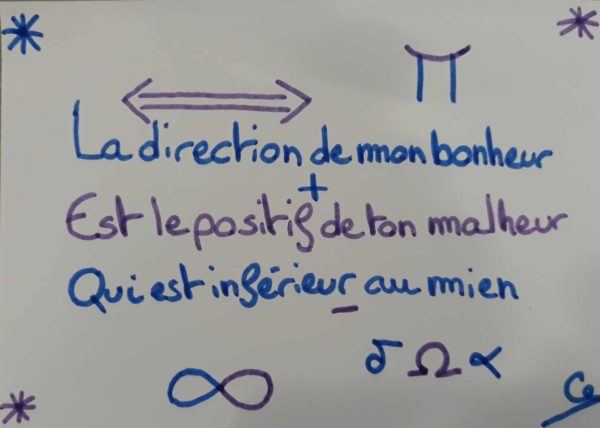 ⇔ π
La direction de mon bonheur
+
Est le positif de ton malheur
Qui est inférieur au mien
-
∞ δ Ω α